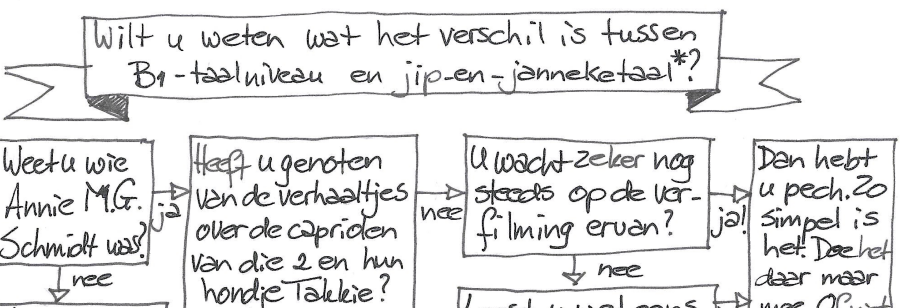 Wilt u weten wat het verschil is tussen
B1-taalniveau en jip-en-janneketaal*?
Weet u wie
Annie M.G.
Schmidt was?
ja
nee
Heeft u genoten
van de verhaaltjes
over de capriolen
van die 2 en hun
hondje Takkie?
nee
U wacht zeker nog
steeds op de ver-
filming ervan?
ja!
nee
Dan hebt
u pech. Zo
simpel is
het. Doe het
daar maar